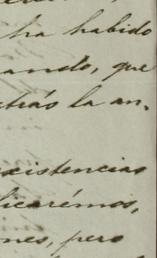 ha habido
ando, que
etrás la an-
xistencias
licarémos,
nes, pero